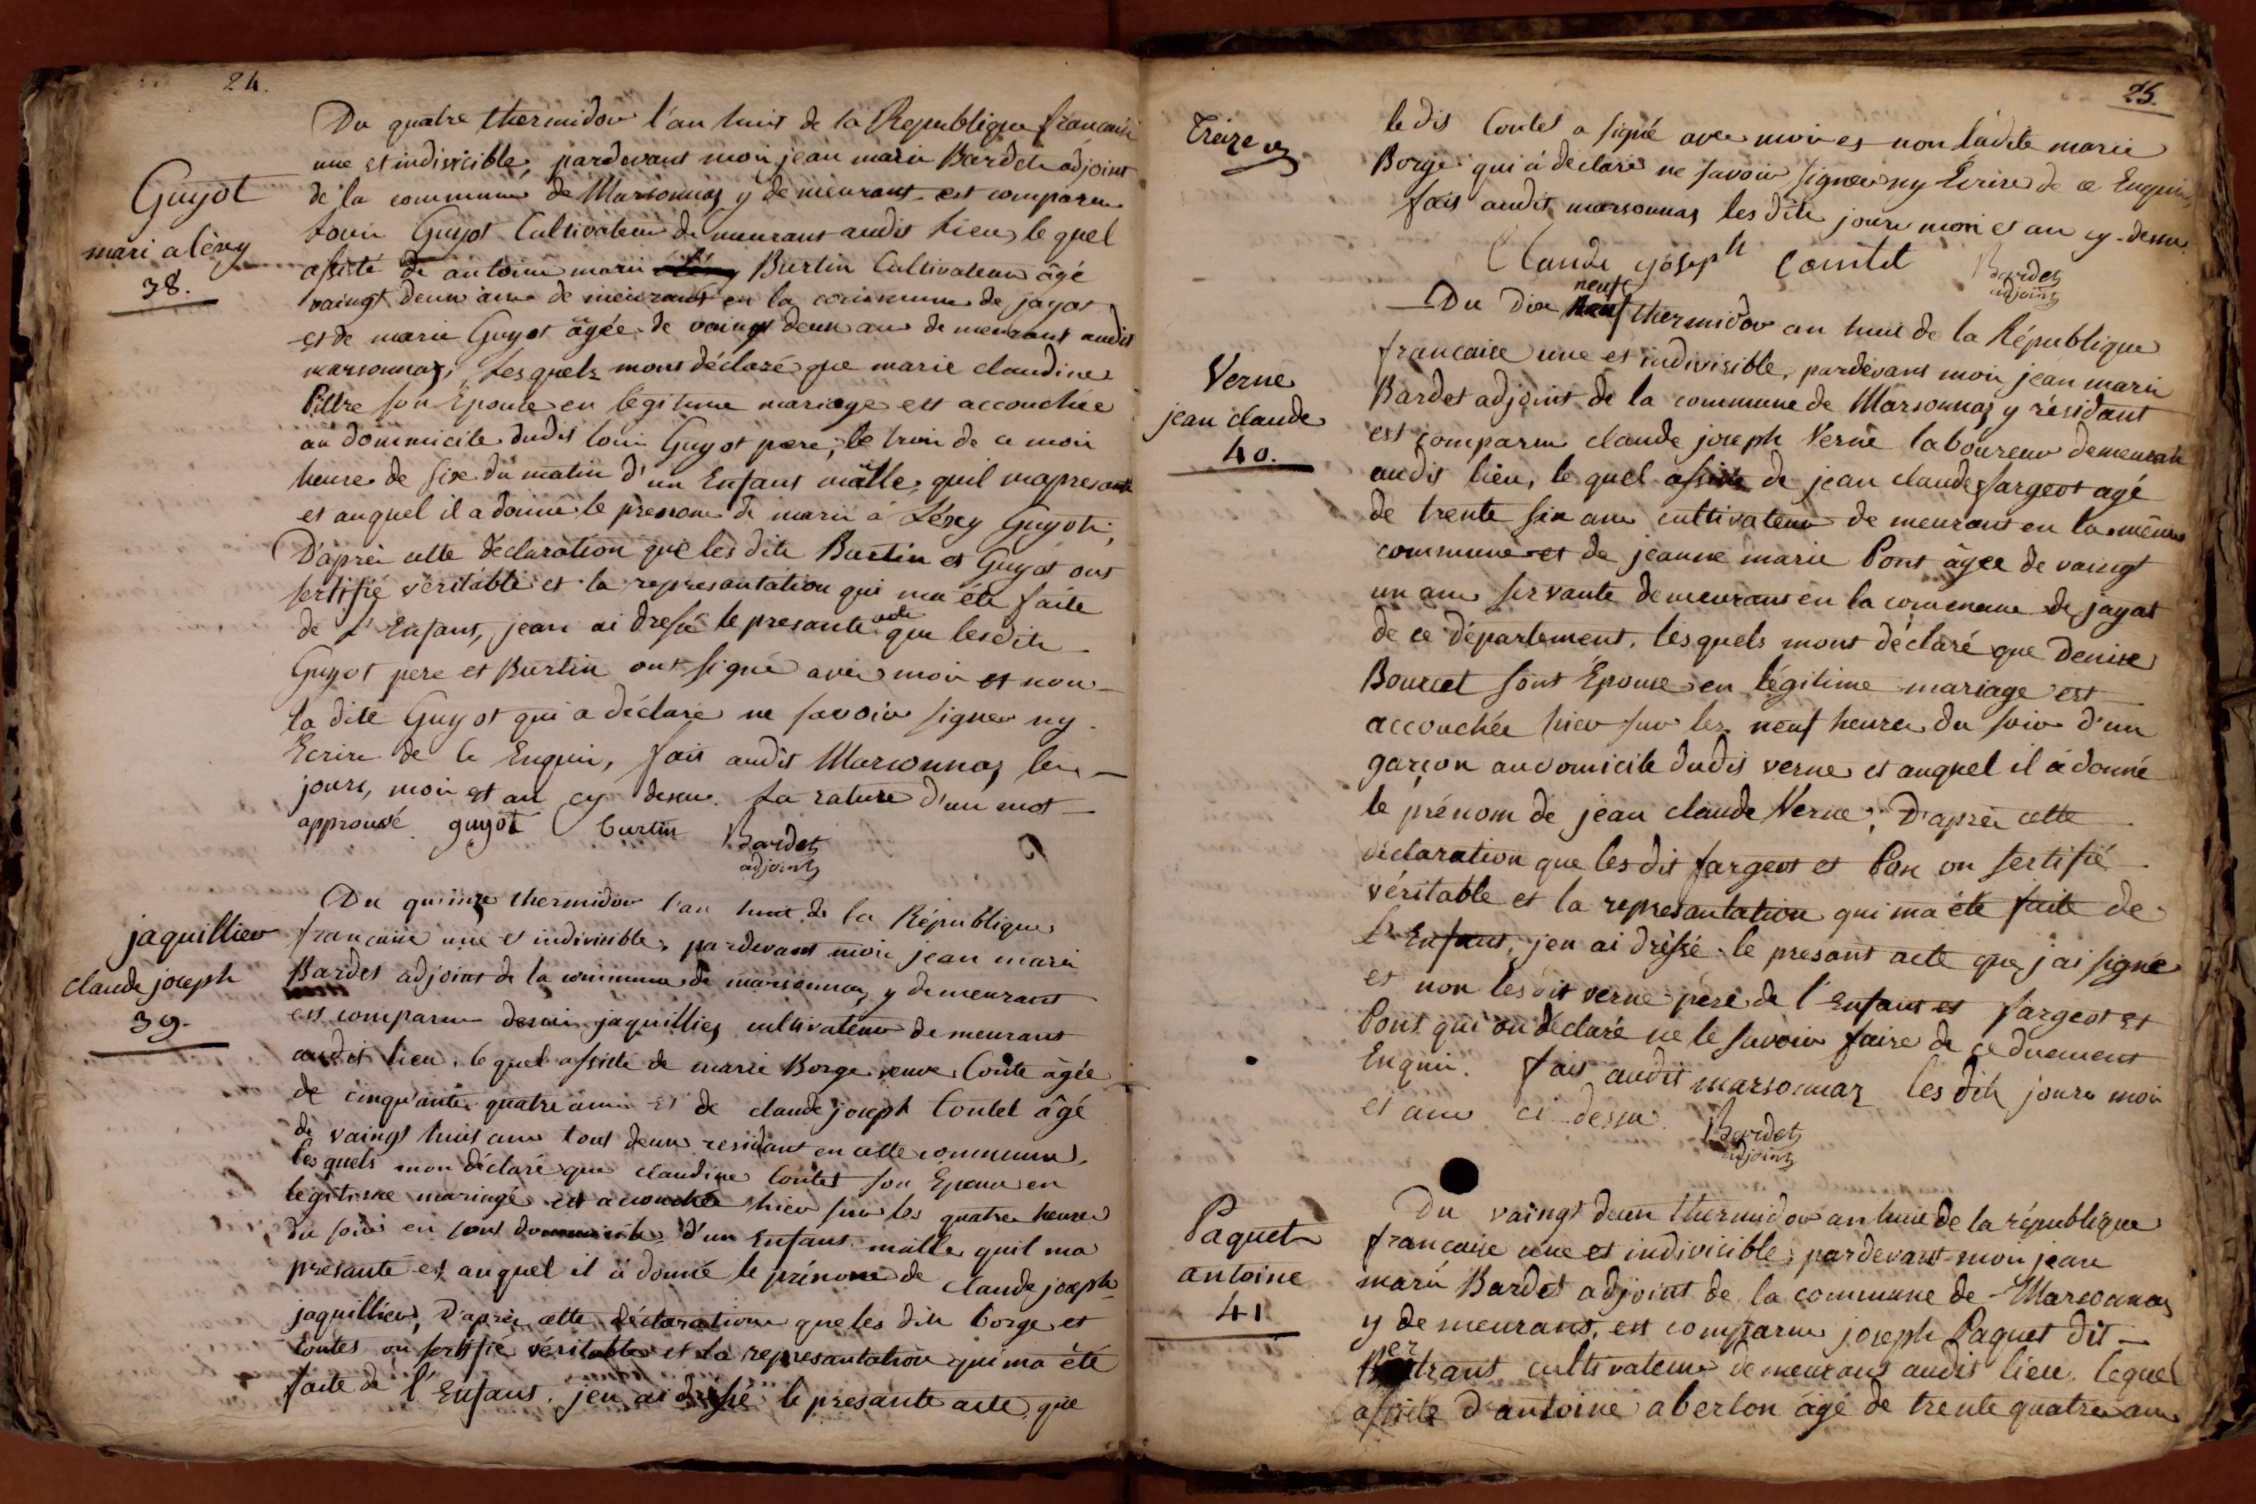 24.
Du quatre thermidor l'an huit de la Republique francaise
une et indivicible, pardevant moi jean marie Bardet adjoint
de la commune de Marsonnas y demeurant est comparu
Guyot
mari alèxy
38.
Louis Guyot Cultivateur demeurant audit lieu, le quel
assisté de antoine marie Burtin Cultivateur âgé
vaingt deux ans de meurant en la commune de jayat
et de marie Guyot âgée de vaingt deux ans de meurant audit
marsonnas, Lesquels mont déclaré que marie claudine
Piltre son Epouse en légitime mariage est accouchée
au dommicile dudit louis Guyot pere, le trois de ce mois
heure de six du matin d'un Enfant mâlle, quil ma presanté
et auquel il a donné le prenom de marie à Léxcy Guyot;
D'après cette déclaration que les dits Burtin et Guyot ont
sertifié véritable et la représantation qui ma été faite
de L'Enfant, jean ai dressé le presante acte que lesdits
Guyot pere et Burtin ont signé avec moi et non
la dite Guyot qui a déclaré ne savoir signer ny
Ecrire de Ce Enquis, fait audit Marsonnas les
jours, mois et an cy dessus. La rature d'un mot
approuvé guyot burtin Bardet
adjoint
jaquillier
claude joseph
39.
Du quinze thermidor l'an huit de la République
francaise une et indivicible, pardevant moi jean marie
Bardet adjoint de la commune de marsonnas y demeurant
est comparu denis jaquillier cultivateur de meurant
audit lieu, le quel assisté de marie Borge veuve Conte âgée
de cinquante quatre ans et de claude joseph Contet âgé
de vaingt huit ans tout deux residant en cette commune,
les quels mon déclaré que claudine Contet son Epouse en
légitime mariage est accouchée hier sur les quatre heures
du soir en sont dommicile d'un Enfant malle quil ma
présanté et auquel il a donné le prénom de claude joseph
jaquillier, D'après cette déclaration que les dits borge et
Contet on sertifié véritable et la représantation qui ma été
faite de l'Enfant. jen ai dréssé le presante acte que
25.
Treize
ledit Contet a signé avec moi et non ladite marie
Borge qui à déclaré ne savoir signer ny Écrire de ce Enquis,
fait audit marsonnas les dits jours mois et an cy-dessus
Claude joseph Contet Bardet
adjoint
Verne
jean claude
40.
Du dix neuf thermidor an huit de la République
francaise une et indivisible, pardevant moi jean marie
Bardet adjoint de la commune de Marsonnas y résidant
est comparu claude joseph Verne laboureur demeurant
audit lieu, le quel assisté de jean claude fargeot agé
de trente six ans cultivateur de meurant en la même
commune et de jeanne marie Pont âgée de vaingt
un ans servante demeurant en la commune de jayat
de ce département, lesquels mont déclaré que Denise
Bourcet sont Épouse en légitime mariage est
accouchée hier sur les neuf heures du soir d'un
garçon au domicile dudit verne et auquel il à donné
le prénom de jean claude Verne, D'après cette
déclaration que les dit fargeot et Pon on sertifié
véritable et la représantation qui ma été faite de
L'Enfant, jen ai dréssé le presant acte que j'ai signé
et non les dit verne père de l'Enfant et fargeot et
Pont qui on déclaré ne le savoir faire de ce duement
Enquis. fait audit marsonnaz les dits jours mois
et ans ci dessu. Bardet
adjoint
Paquet
antoine
41
Du vaingt deux thermidor an huit de la république
francaise une et indivicible, pardevant moi jean
marie Bardet adjoint de la commune de Marsonnas
y demeurant, est comparu joseph Paquet dit
Pertrant cultivateur demeurant audit lieu, lequel
assisté d'antoine aberlon âgé de trente quatre ans